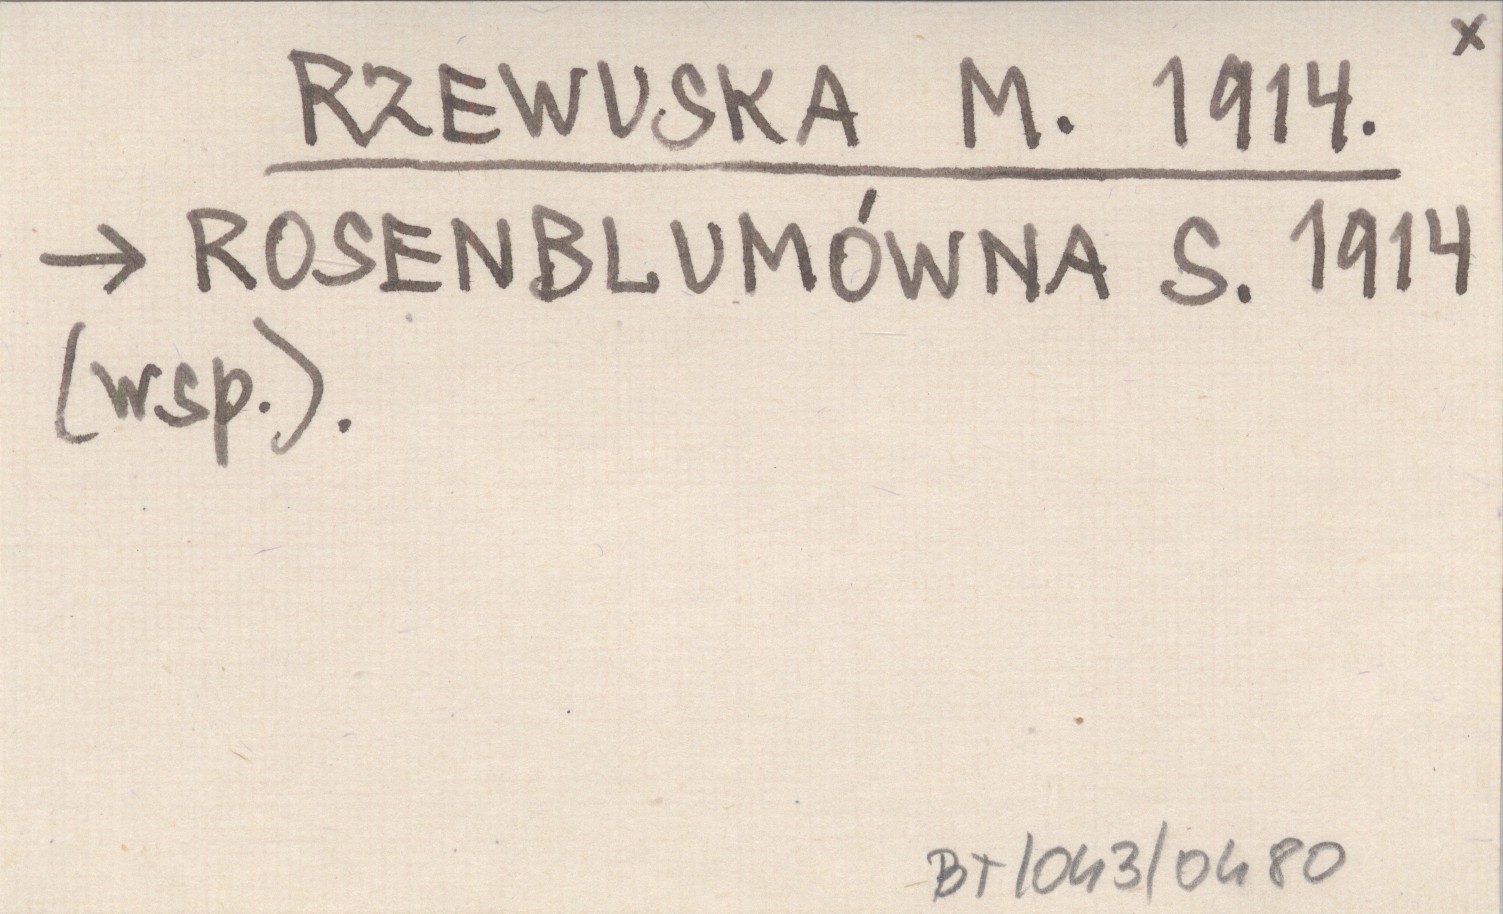 x
RZEWUSKA M. 1914.
→ ROSENBLUMÓWNA S. 1914
(wsp.).
BT/043/0480